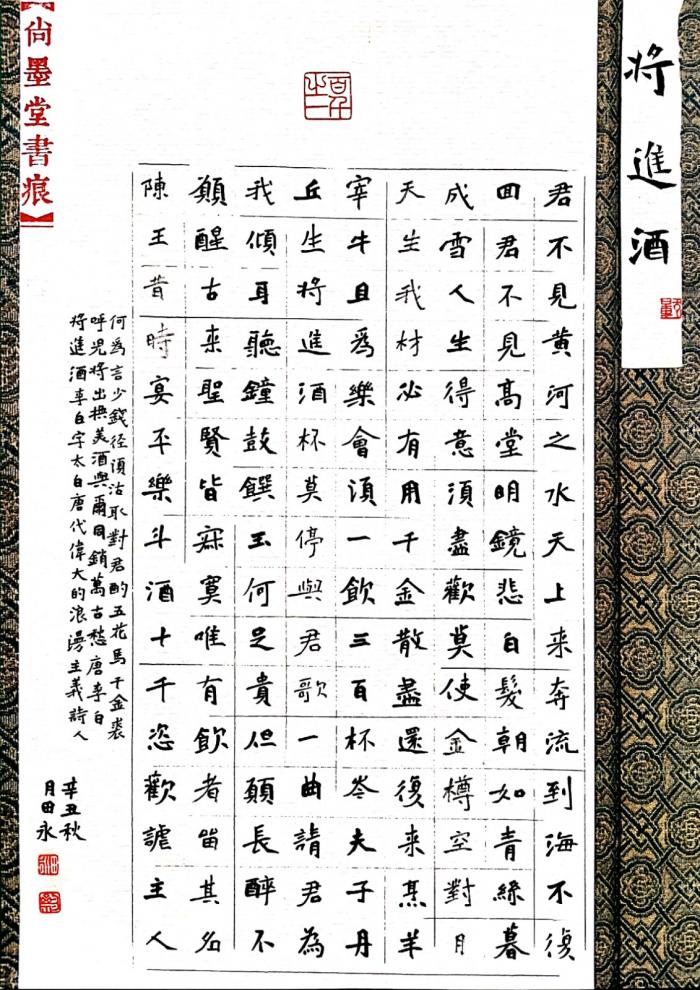 将進酒
君不見黄河之水天上来奔流到海不復
回君不見髙堂明鏡悲白髮朝如青絲暮
成雪人生得意須盡歡莫使金樽空對月
天生我材必有用千金散盡還復来烹羊
宰牛且為樂會須一飲三百杯岑夫子丹
丘生将進酒杯莫停與君歌一曲請君為
我傾耳聽鐘鼓饌玉何足貴但願長醉不
願醒古来聖賢皆寂寞唯有飲者留其名
陳王昔時宴平樂斗酒十千恣歡謔主人
何為言少錢径須沽取對君酌五花馬千金裘
呼児将出换美酒與爾同銷萬古愁唐李白
将進酒李白字太白唐代偉大的浪漫主義詩人
辛丑秋
月田永
【尚墨堂書痕】